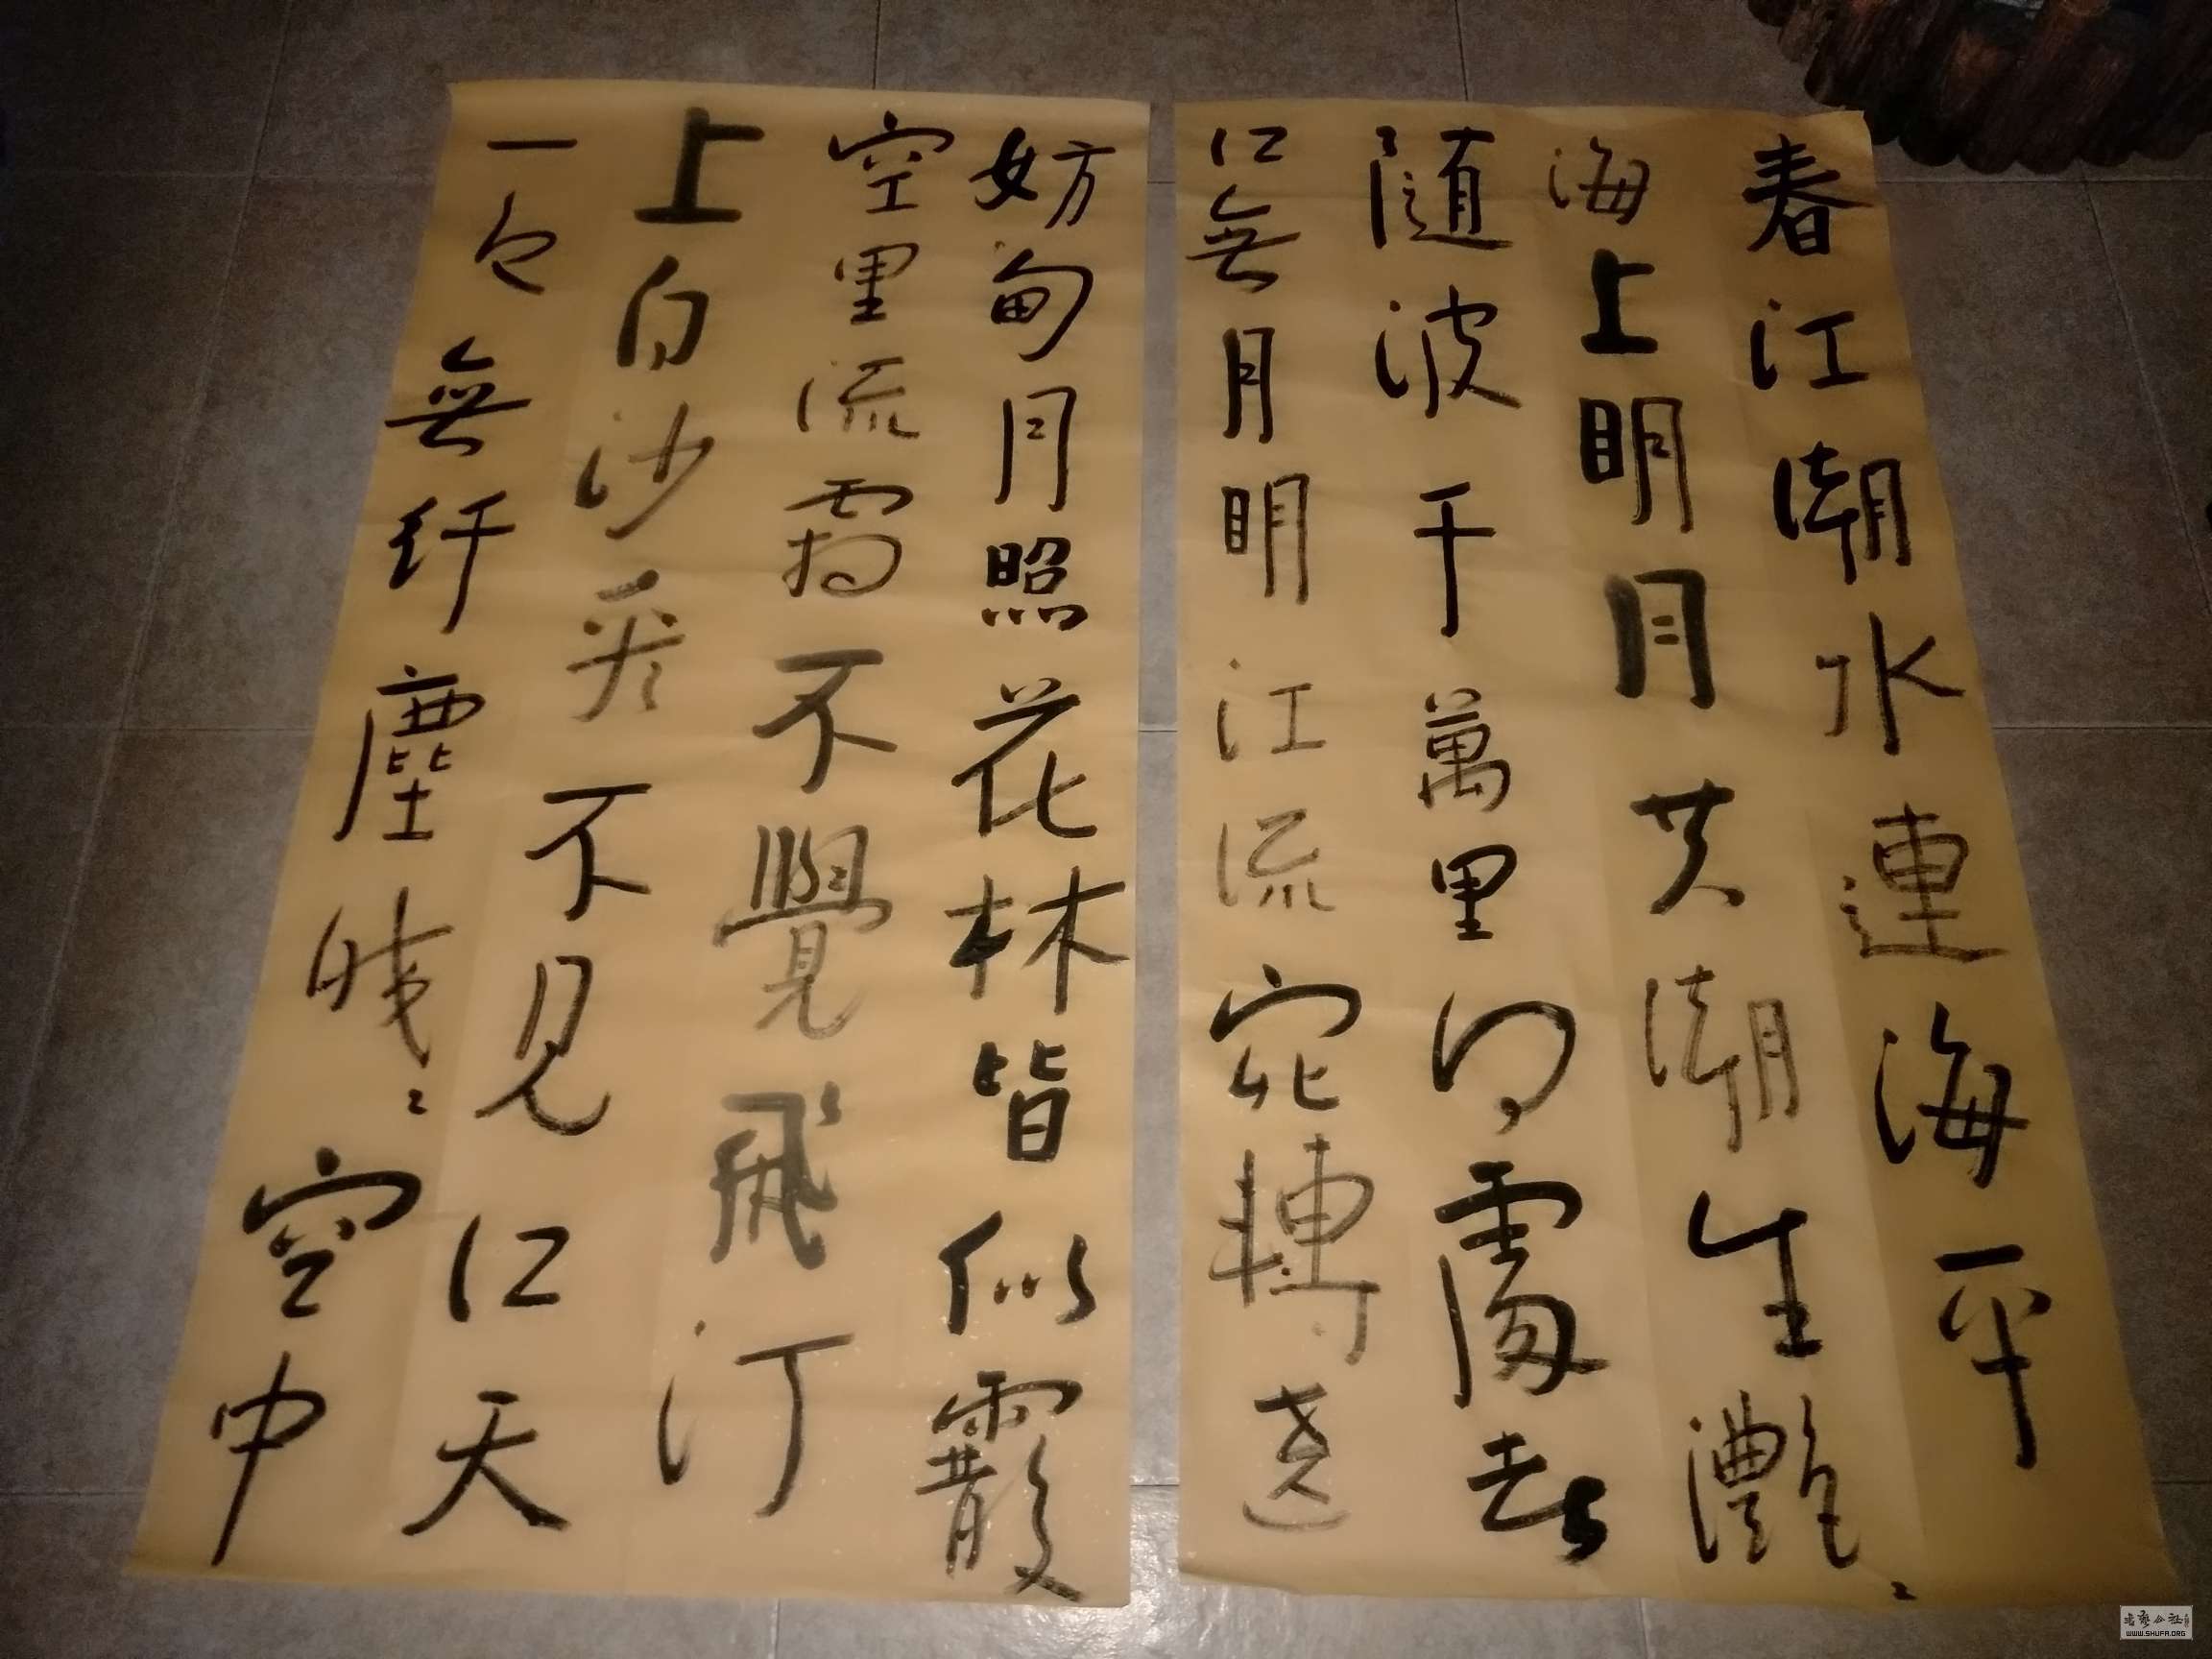 春江潮水連海平
海上明月共潮生灩〻
隨波千萬里何處春
江無月明江流宛轉遶
妨甸月照花林皆似霰
空里流霜不覺飛汀
上白沙看不見江天
一色無纤塵皎〻空中
書藝公社
WWW.SHUFA.ORG